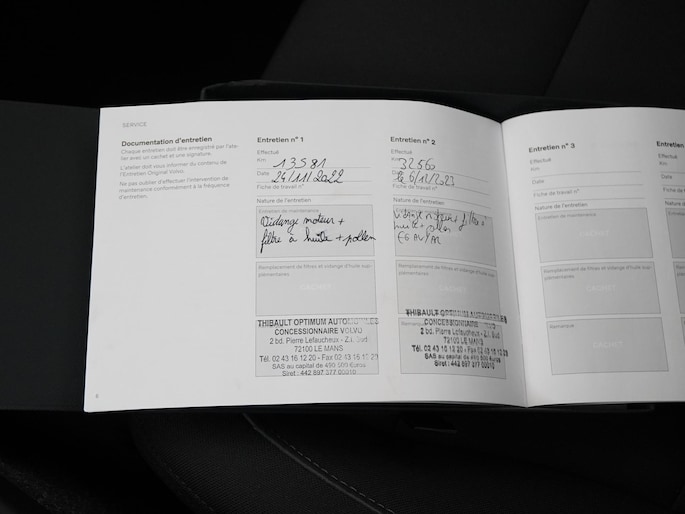 SERVICE
Documentation d'entretien
Chaque entretien doit être enregistré par l'ate-
lier avec un cachet et une signature.
L'atelier doit vous informer du contenu de
l'Entretien Original Volvo.
Ne pas oublier d'effectuer l'intervention de
maintenance conformément à la fréquence
d'entretien.
6
Entretien n° 1
Effectué
Km 13581
Date 24/11/2022
Fiche de travail n°
Nature de l'entretien
Entretien de maintenance
Vidange moteur +
filtre à huile + pollen
Remplacement de filtres et vidange d'huile sup-
plémentaires
CACHET
THIBAULT OPTIMUM AUTOMOBILES
CONCESSIONNAIRE VOLVO
2 bd. Pierre Lefaucheux - Z.I. Sud
72100 LE MANS
Tél. 02 43 16 12 20 - Fax 02 43 16 12
SAS au capital de 499 500 €uros
Siret : 442 897 377 00010
Entretien n° 2
Effectué
Km 32560
Date 6/12/2023
Fiche de travail n°
Nature de l'entretien
Vidange filtre à
huile +
AV/AR
Remplacement de filtres et vidange d'huile sup-
plémentaires
CACHET
THIBAULT OPTIMUM AUTOMOBILES
Remarque
CONCESSIONNAIRE
2 bd. Pierre Lefaucheux - Z.I. Sud
72100 LE MANS
Tél. 02 43 16 12 20 - Fax 02 43 16
SAS au capital de 499 500 €uros
Siret : 442 897 377 00010
Entretien n° 3
Effectué
Km
Date
Fiche de travail n°
Nature de l'entretien
Entretien de maintenance
CACHET
Remplacement de filtres et vidange d'huile sup-
plémentaires
CACHET
Remarque
CACHET
Entretien
Effectué
Km
Date
Fiche de
Nature de